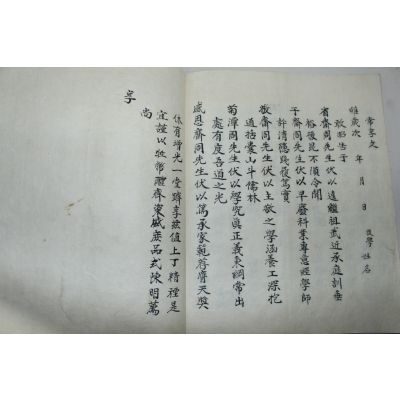 常享文
維歲次 年 月 日 後學姓名
敢昭告于
省齋周先生伏以遠繼祖武近承庭訓垂
裕後昆不顯令聞
予齋周先生伏以早廢科業專意經學師
許清隱踐履篤實
敬齋周先生伏以主敬之學涵養工深挖
道括囊山斗儒林
菊潭周先生伏以學究眞正義東綱常出
處有度吾道之光
感恩齋周先生伏以篤承家範荐膺天奬
休有增光一堂躋享玆值上丁精禋是
宜謹以牲幣醴齊粢盛庶品式陳明薦
尚
享